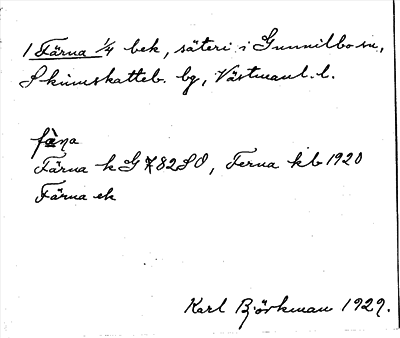 1 Färna 1/4 bek, säteri i Gunnilbo sn,
Skinnskatteb. bg, Västmanl. l.
fæ̀ɳa
Färna k G X82SO, Ferna kb 1920
Färna ek
Karl Björkman 1929.